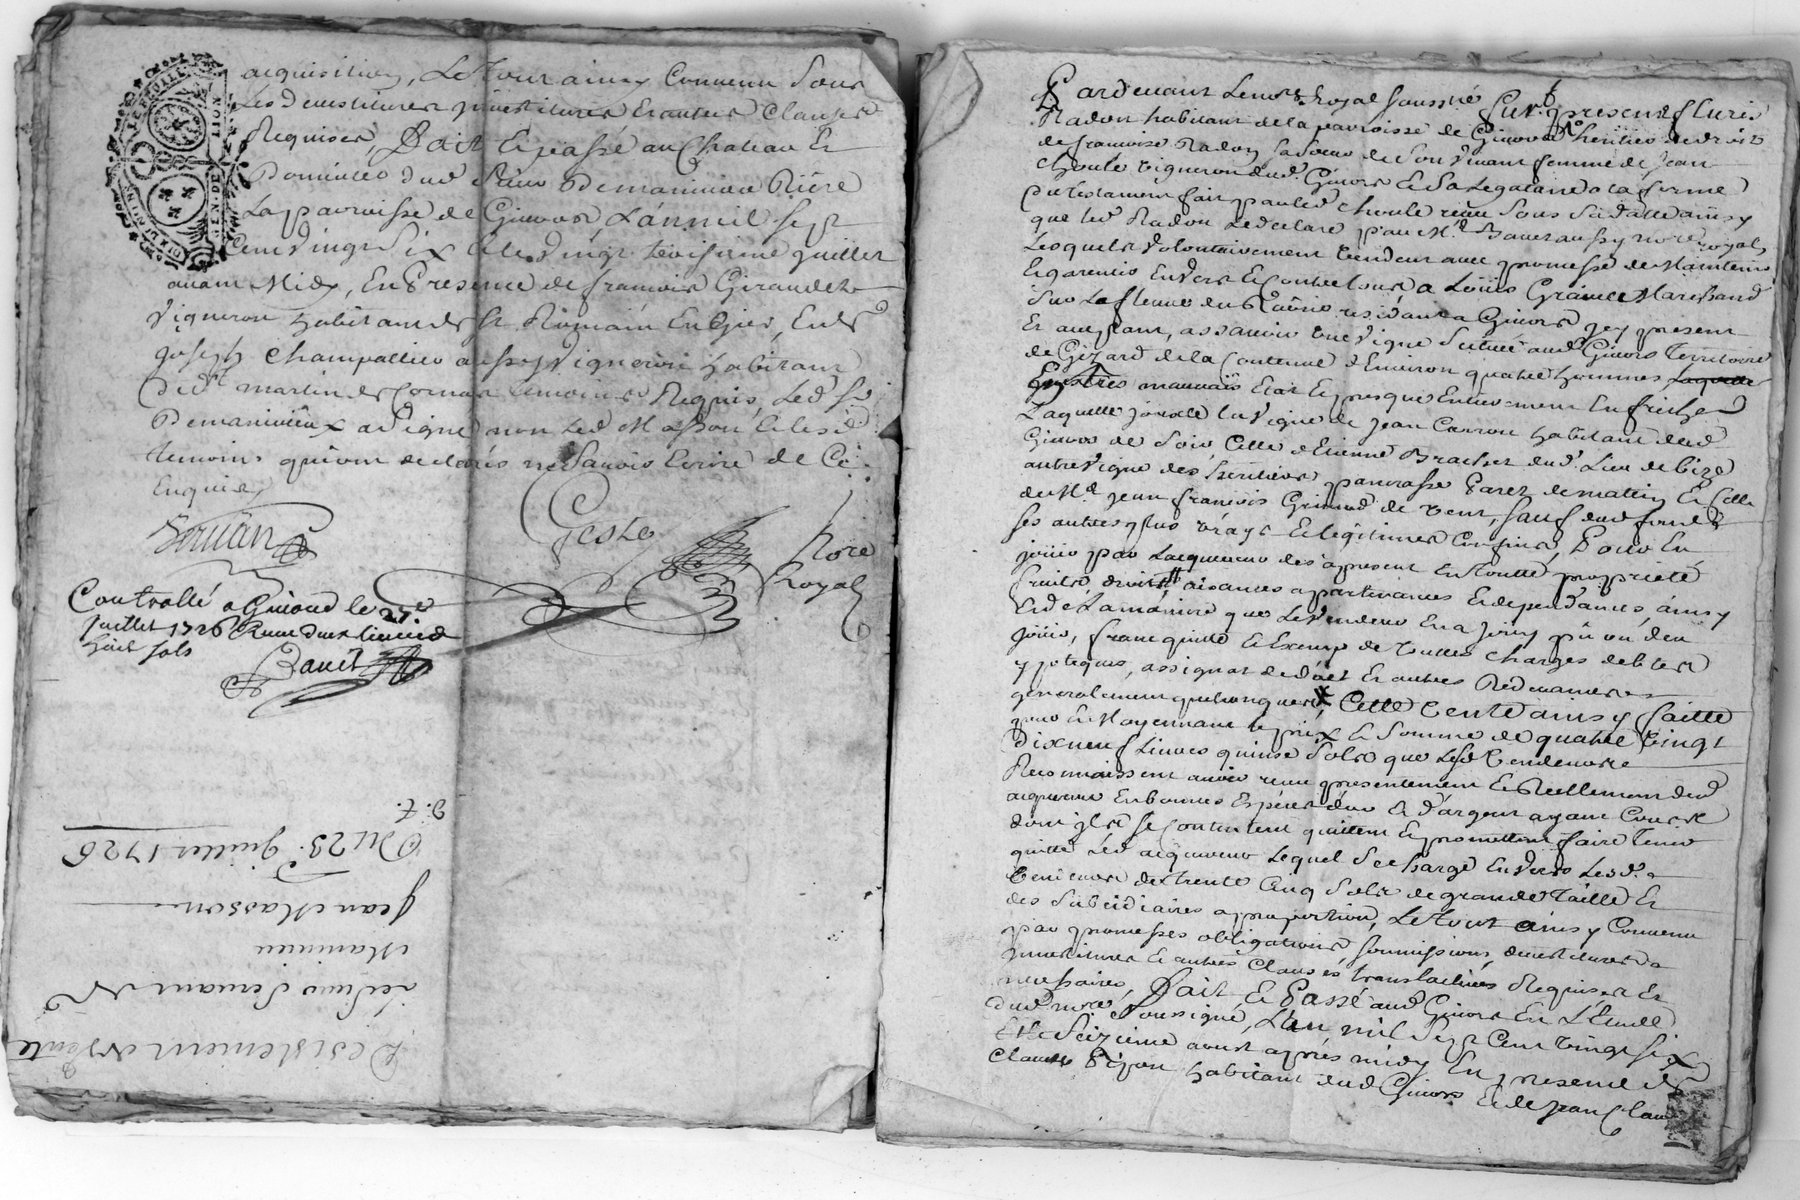 acquisition, Le Tout ainsy Convenu Sous
Les devestitures investitures Et autres Clauses
Requises, Fait Et passé au Chateau Et
Domicile dud Sieur Demanineu Riere
La parroisse de Givors, L'an mil sept
Cent Vingt Six Et le Vingt troisieme Juillet
avant Midy, En Presence de francois Giraudet
Vigneron habitant de St Romain En Gier, Et de
Joseph Champallier aussy Vigneron habitant
de St martin de Cornas temoins Requis, Led Sr
Demanineux a Signé non Led Masson Et lesd
temoins qui ont declarés ne Savoir Ecrire de Ce
Enquis
Geste
Nore
Royal
Controllé a Givord le 27e
Juillet 1726 Reçu deux livres
huit sols
Bauet
Desistement de Vente
Manineu
Jean Masson
Du 23e Juillet 1726
Pardevant Le nore Royal soussné furt presents fleurie
Radon habitant de la parroisse de Givord héritier de droit
de francoise Radon Sa Soeur de Son Vivant femme de Jean
Choule Vigneron dud Givors Et Sa Legataire a la forme
du testament fait par led Choule reçu Sous Sa datte ainsy
que led Radon Le declare par Me Bauet aussy nore royal,
Lesquels Volontairement Vendent avec promesse de Maintenir
Et garentir Envers Et Contre tous a Loüis Grange Marchand
Sur Le fleuve du Rhône residant a Givors icy present
Et acceptant, assavoir Une Vigne Scituée aud Givors Territoire
de Gizard de la Contenue d'Environ quatre hommes Laquelle
En très mauvais Etat Et presque Entierement En friche
Laquelle Jouxte la Vigne de Jean Carron habitant dud
Givors de Soir, Celle d'Etienne Brachet dud Lieu de bize
autre Vigne des heritiers pancrasse Garet de matin Et Celle
de Me Jean francois Grimod de Vent, Sauf dud fond
Ses autres plus Vrays Et legitimes Confins, Pour En
joüir par Lacquereur dès apresent En toutte proprieté
fruits, droits aisances appartenances Et dependances, ainsy
Et de La maniere que Le Vendeur En a Joüy pû ou deu
joüir, franc quitte Et Exemp de touttes Charges debtes
ypoteques, assignat de dot Et autres Redevances
generalement quelconques, Cette Vente ainsy faitte
pour Et Moyennant le prix Et Somme de quatre Vingt
dix neuf Livres quinse Sols que Lesd Vendeurs
Reconnoissent avoir reçu presentement Et Réellement dud
acquereur En bonnes Especes d'or Et d'argent ayant Cours
dont ils Se Contentent quittent Et promettent faire Tenir
quitte Led acquereur Lequel Se Charge Envers Lesd
Vendeurs de trente Cinq Sols de grande Taille Et
des Subsidiaires aproportion, Le Tout ainsy Convenu
par promesses obligations Soumissions, devestitures
investitures Et autres Clauses translatives Requises Et
necessaires, Fait Et Passé aud Givors En L'Etude
dud nore Soussigné, L'an mil Sept Cent Vingt Six
Et le Seizieme aoust après midy En presence de
Claude Pijon habitant dud Givors Et de Jean Clau